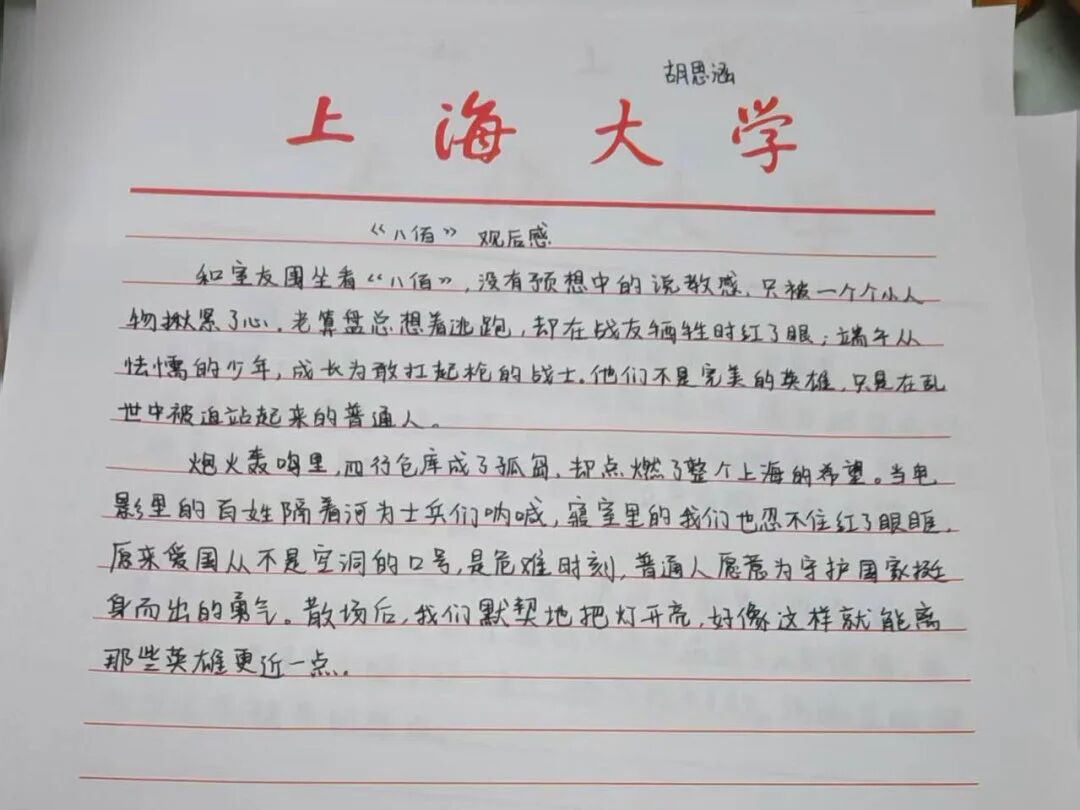 胡思涵
上海大学
《八佰》观后感
和室友围坐看《八佰》,没有预想中的说教感,只被一个个小人
物揪紧了心。老算盘总想着逃跑,却在战友牺牲时红了眼;端午从
怯懦的少年,成长为敢扛起枪的战士。他们不是完美的英雄,只是在乱
世中被迫站起来的普通人。
炮火轰鸣里,四行仓库成了孤岛,却点燃了整个上海的希望。当电
影里的百姓隔着河为士兵们呐喊,寝室里的我们也忍不住红了眼眶,
原来爱国从不是空洞的口号,是危难时刻,普通人愿意为守护国家挺
身而出的勇气。散场后,我们默契地把灯开亮,好像这样就能离
那些英雄更近一点.